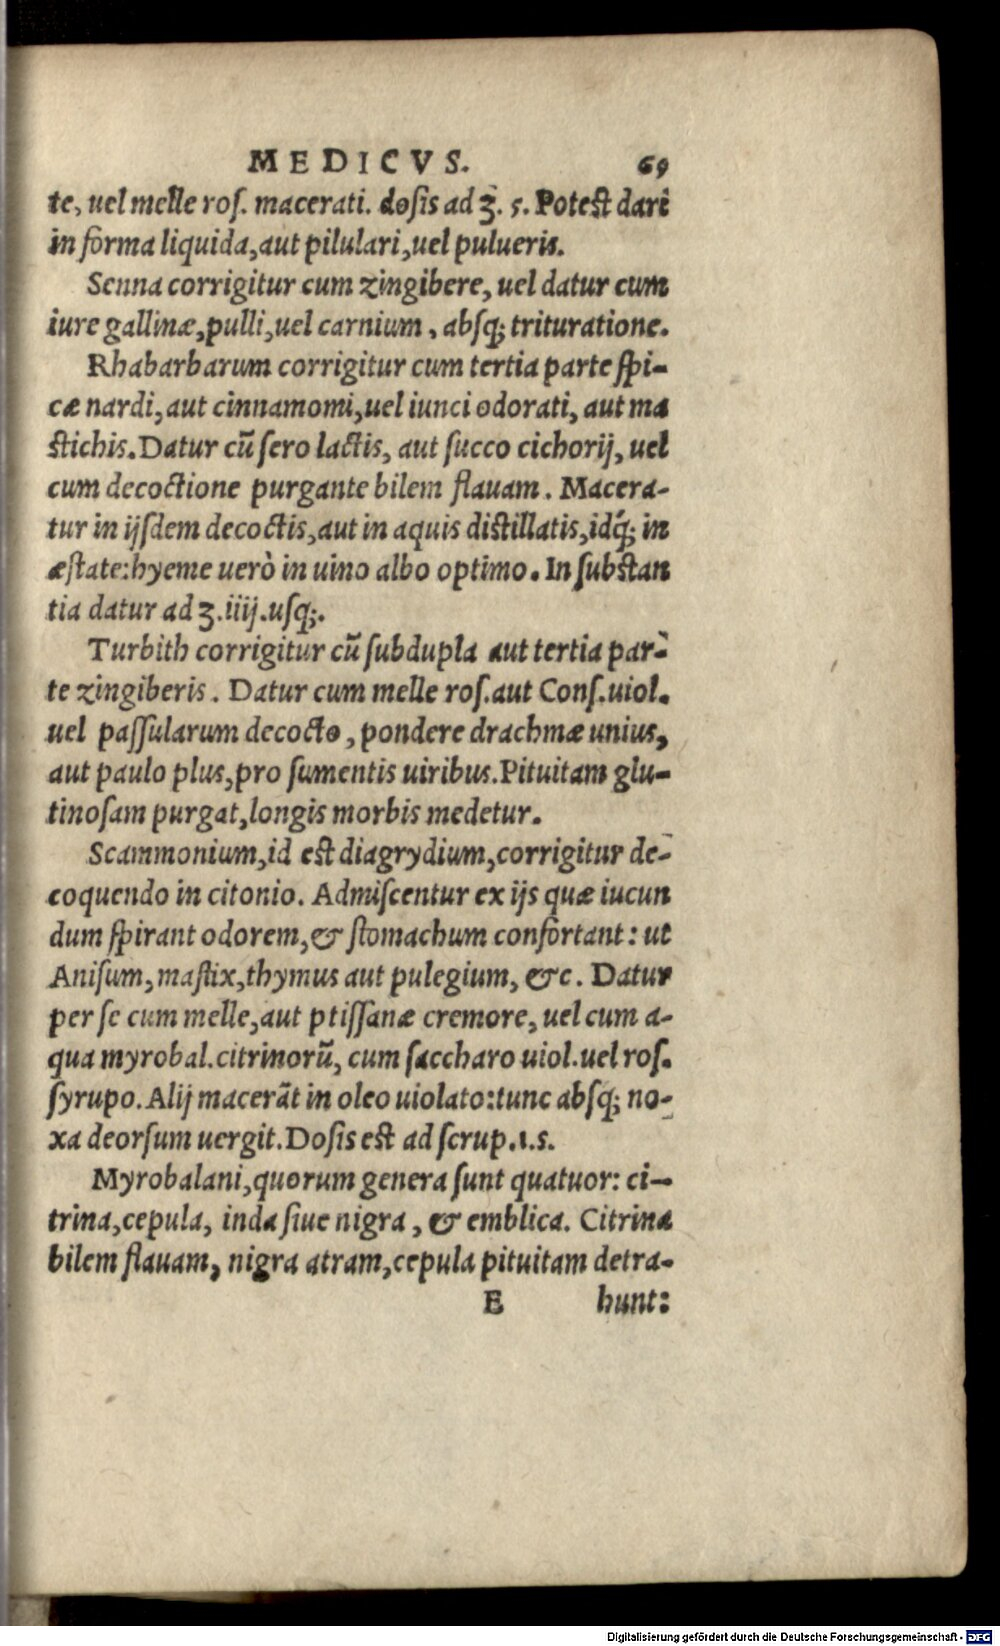 MEDICVS. 69
te, uel melle roſ. macerati. doſis ad ʒ. s. Poteſt dari
in forma liquida, aut pilulari, uel pulueris.
Senna corrigitur cum zingibere, uel datur cum
iure gallinæ, pulli, uel carnium, abſq; trituratione.
Rhabarbarum corrigitur cum tertia parte ſpi-
cæ nardi, aut cinnamomi, uel iunci odorati, aut ma
ſtichis. Datur cū ſero lactis, aut ſucco cichorij, uel
cum decoctione purgante bilem flauam. Macera-
tur in ijſdem decoctis, aut in aquis diſtillatis, idq́; in
æſtate: hyeme uerò in uino albo optimo. In ſubſtan
tia datur ad ʒ. iiij. uſq;.
Turbith corrigitur cū ſubdupla aut tertia par-
te zingiberis. Datur cum melle roſ. aut Conſ. uiol.
uel paſſularum decocto, pondere drachmæ unius,
aut paulo plus, pro ſumentis uiribus. Pituitam glu-
tinoſam purgat, longis morbis medetur.
Scammonium, id eſt diagrydium, corrigitur de-
coquendo in citonio. Admiſcentur ex ijs quæ iucun
dum ſpirant odorem, & ſtomachum confortant: ut
Aniſum, maſtix, thymus aut pulegium, &c. Datur
per ſe cum melle, aut ptiſſanæ cremore, uel cum a-
qua myrobal. citrinorū, cum ſaccharo uiol. uel roſ.
ſyrupo. Alij macerāt in oleo uiolato: tunc abſq; no-
xa deorſum uergit. Doſis eſt ad ſcrup. 1. s.
Myrobalani, quorum genera ſunt quatuor: ci-
trina, cepula, inda ſiue nigra, & emblica. Citrina
bilem flauam, nigra atram, cepula pituitam detra-
E hunt:
Digitalisierung gefördert durch die Deutsche Forschungsgemeinschaft - DFG